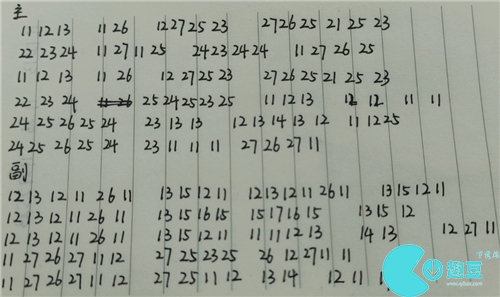 主
11 12 13 11 26 12 27 25 23 27 26 25 21 25 23
22 23 24 11 27 11 25 24 23 24 24 11 27 26 25
11 12 13 11 26 12 27 25 23 27 26 25 21 25 23
22 23 24 25 24 25 23 25 11 12 13 12 12 11 11
24 25 26 25 24 23 13 13 12 13 14 13 12 11 12 25
24 25 26 25 24 23 11 11 11 27 26 27 11
副
12 13 12 11 26 11 13 15 12 11 12 13 12 11 26 11 13 15 12 11
12 13 12 11 26 11 13 15 16 15 15 17 16 15 13 15 12
12 13 12 11 26 11 13 15 12 11 11 11 12 13 14 13 12 27 11
11 27 26 27 11 12 27 25 23 25 26 12 27 11 11
11 27 26 27 11 12 27 25 11 12 13 14 12 11
趣豆